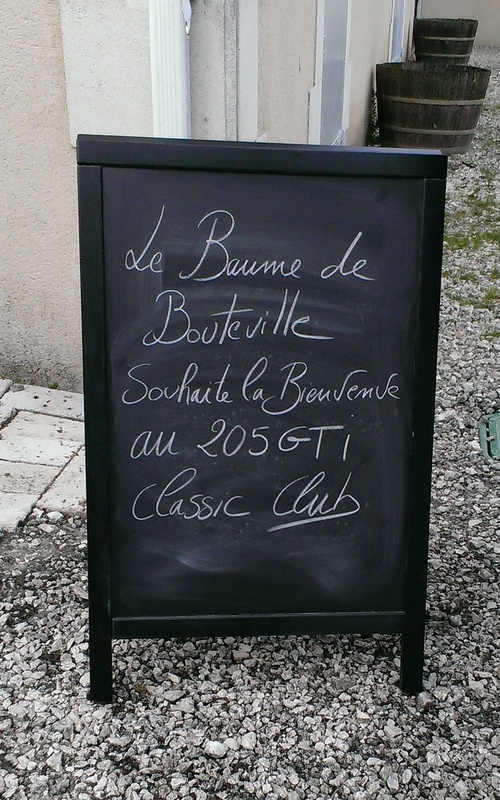 Le Baume de
Bouteville
Souhaite la Bienvenue
au 205 GTi
Classic Club